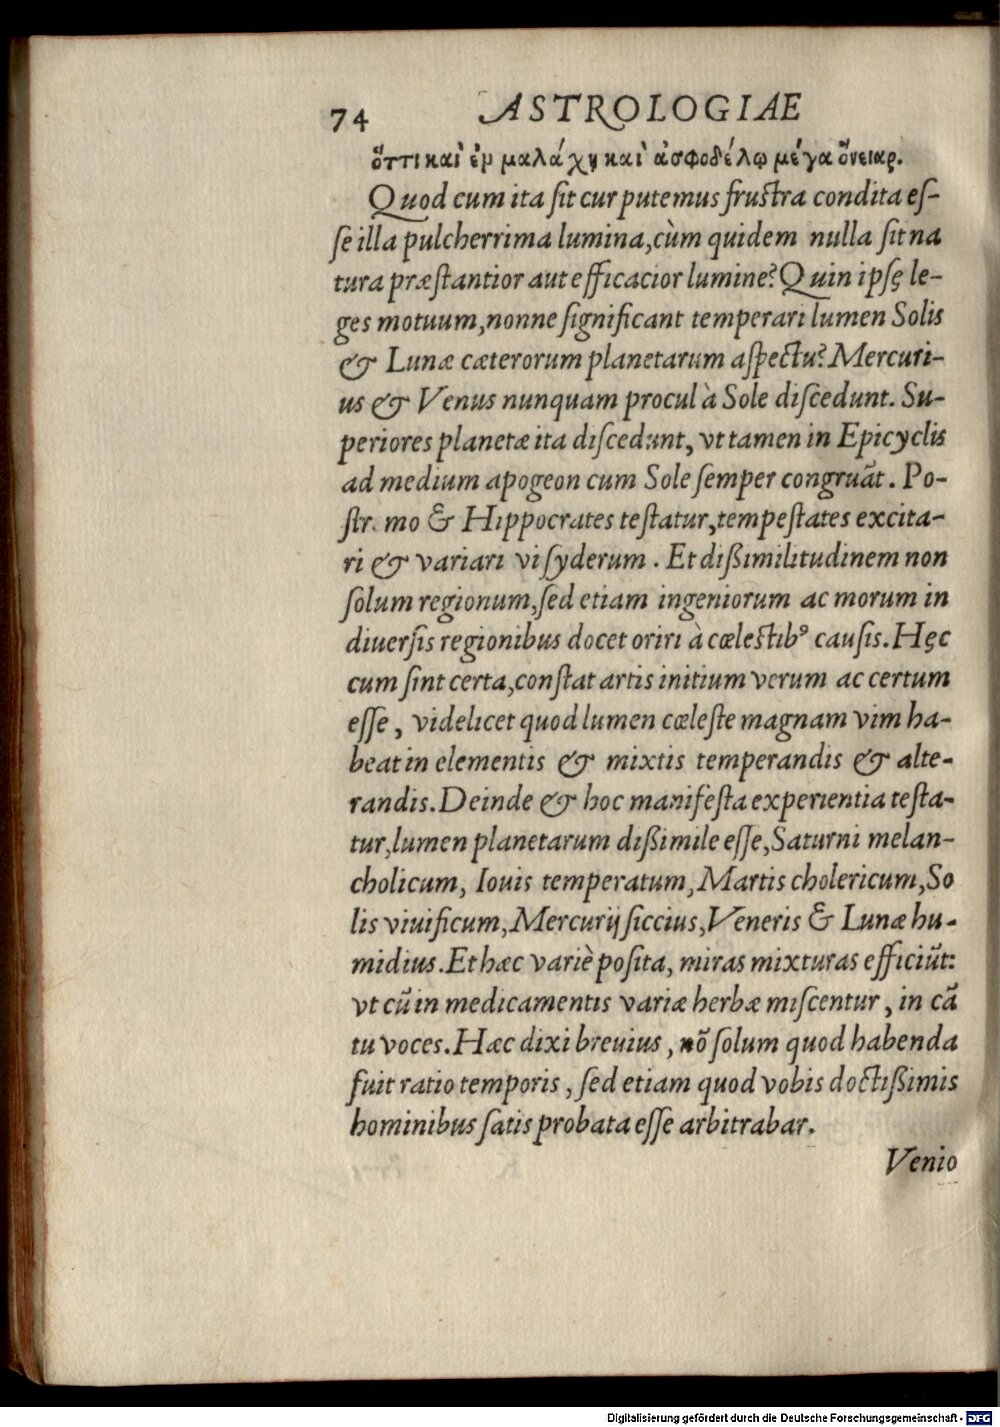 74 ASTROLOGIAE
ὅττι καὶ ἐν μαλάχῃ καὶ ἀσφοδέλῳ μέγα ὄνειαρ.
Quod cum ita ſit cur putemus fruſtra condita eſ-
ſe illa pulcherrima lumina, cùm quidem nulla ſit na
tura præſtantior aut efficacior lumine? Quin ipſę le-
ges motuum, nonne ſignificant temperari lumen Solis
& Lunæ cæterorum planetarum aſpectu? Mercuri-
us & Venus nunquam procul à Sole diſcedunt. Su-
periores planetæ ita diſcedunt, vt tamen in Epicyclis
ad medium apogeon cum Sole ſemper congruãt. Po-
ſtr mo & Hippocrates teſtatur, tempeſtates excita-
ri & variari vi ſyderum. Et dißimilitudinem non
ſolum regionum, ſed etiam ingeniorum ac morum in
diuerſis regionibus docet oriri à cœleſtibꝰ cauſis. Hęc
cum ſint certa, conſtat artis initium verum ac certum
eſſe, videlicet quod lumen cœleſte magnam vim ha-
beat in elementis & mixtis temperandis & alte-
randis. Deinde & hoc manifeſta experientia teſta-
tur, lumen planetarum dißimile eſſe, Saturni melan-
cholicum, Iouis temperatum, Martis cholericum, So
lis viuificum, Mercurij ſiccius, Veneris & Lunæ hu-
midius. Et hæc variè poſita, miras mixturas efficiũt:
vt cũ in medicamentis variæ herbæ miſcentur, in cã
tu voces. Hæc dixi breuius, nõ ſolum quod habenda
fuit ratio temporis, ſed etiam quod vobis doctißimis
hominibus ſatis probata eſſe arbitrabar.
Venio
Digitalisierung gefördert durch die Deutsche Forschungsgemeinschaft - DFG